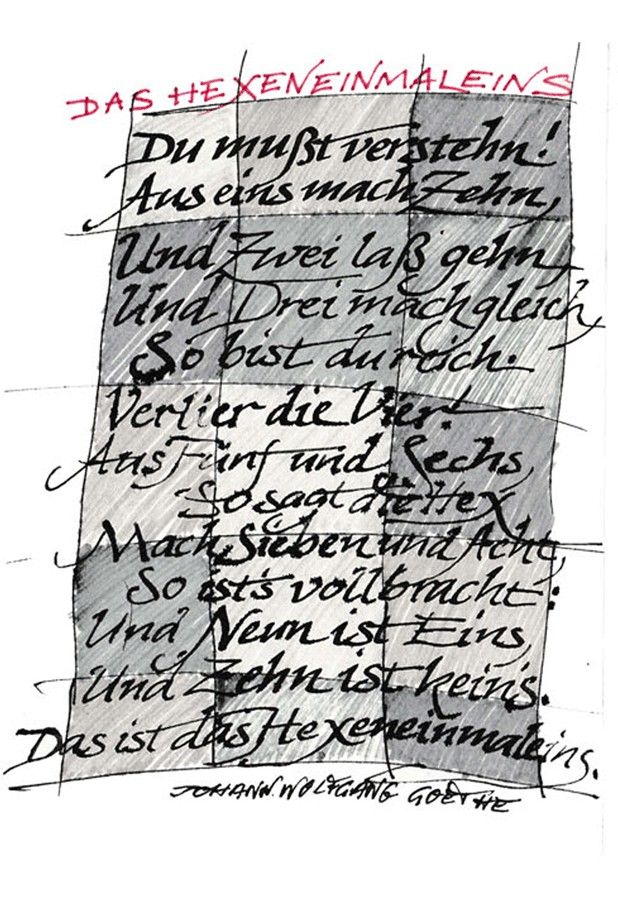 DAS HEXENEINMALEINS
Du mußt verstehn!
Aus eins mach Zehn,
Und Zwei laß gehn,
Und Drei mach gleich,
So bist du reich.
Verlier die Vier!
Aus Fünf und Sechs,
So sagt die Hex,
Mach Sieben und Acht,
So ist's vollbracht:
Und Neun ist Eins,
Und Zehn ist keins.
Das ist das Hexeneinmaleins.
JOHANN WOLFGANG GOETHE